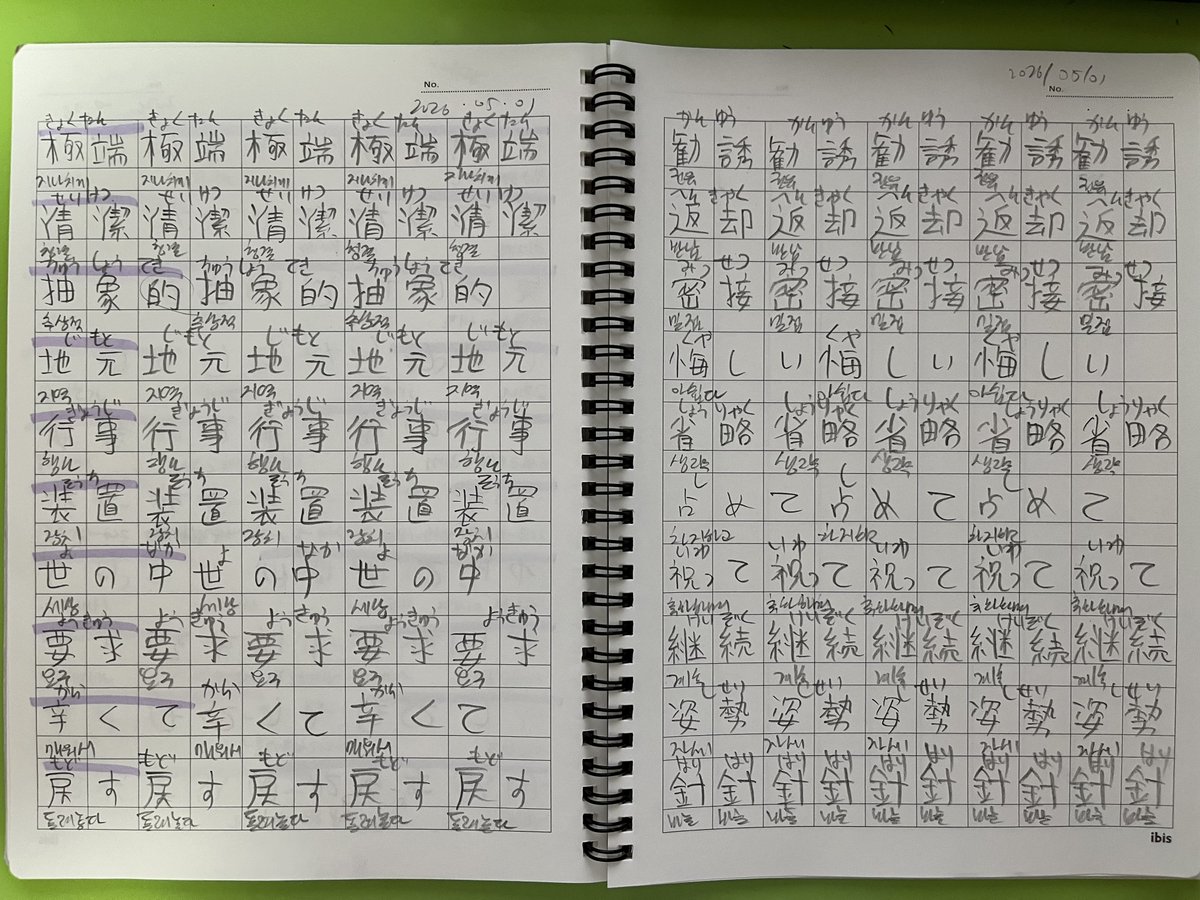 No.
2026.05.01
きょくたん きょくたん きょくたん きょくたん きょくたん
極端 極端 極端 極端 極端
지나치게 지나치게 지나치게 지나치게 지나치게
せいけつ せいけつ せいけつ せいけつ せいけつ
清潔 清潔 清潔 清潔 清潔
청결 청결 청결 청결 청결
ちゅうしょうてき ちゅうしょうてき ちゅうしょうてき
抽象的 抽象的 抽象的
추상적 추상적 추상적
じもと じもと じもと じもと じもと
地元 地元 地元 地元 地元
지역 지역 지역 지역 지역
ぎょうじ ぎょうじ ぎょうじ ぎょうじ ぎょうじ
行事 行事 行事 行事 行事
행사 행사 행사 행사 행사
そうち そうち そうち そうち そうち
装置 装置 装置 装置 装置
장치 장치 장치 장치 장치
よ なか よ なか よ なか
世の中 世の中 世の中
세상 세상 세상
ようきゅう ようきゅう ようきゅう ようきゅう ようきゅう
要求 要求 要求 要求 要求
요구 요구 요구 요구
から から から
辛くて 辛くて 辛くて
매워서 매워서 매워서
もど もど もど もど もど
戻す 戻す 戻す 戻す 戻す
되돌리다 되돌리다 되돌리다 되돌리다 되돌리다
2026/05/01
No.
かんゆう かんゆう かんゆう かんゆう かんゆう
勧誘 勧誘 勧誘 勧誘 勧誘
권유 권유 권유 권유 권유
へんきゃく へんきゃく へんきゃく へんきゃく へんきゃく
返却 返却 返却 返却 返却
반납 반납 반납 반납 반납
みっせつ みっせつ みっせつ みっせつ みっせつ
密接 密接 密接 密接 密接
밀접 밀접 밀접 밀접 밀접
くや
悔しい 悔しい 悔しい
아쉽다 아쉽다 아쉽다
しょうりゃく しょうりゃく しょうりゃく しょうりゃく しょうりゃく
省略 省略 省略 省略 省略
생략 생략 생략 생략 생략
し し し
占めて 占めて 占めて
차지하고 차지하고 차지하고
いわ いわ いわ いわ いわ
祝って 祝って 祝って 祝って 祝って
축하하며 축하하며 축하하며 축하하며 축하하며
けいぞく けいぞく けいぞく けいぞく けいぞく
継続 継続 継続 継続 継続
계속 계속 계속 계속 계속
せい せい せい せい
姿勢 姿勢 姿勢 姿勢 姿勢
자세 자세 자세 자세 자세
はり はり はり はり はり はり はり はり はり はり
針 針 針 針 針 針 針 針 針 針
바늘 바늘 바늘 바늘 바늘 바늘 바늘 바늘 바늘 바늘
ibis